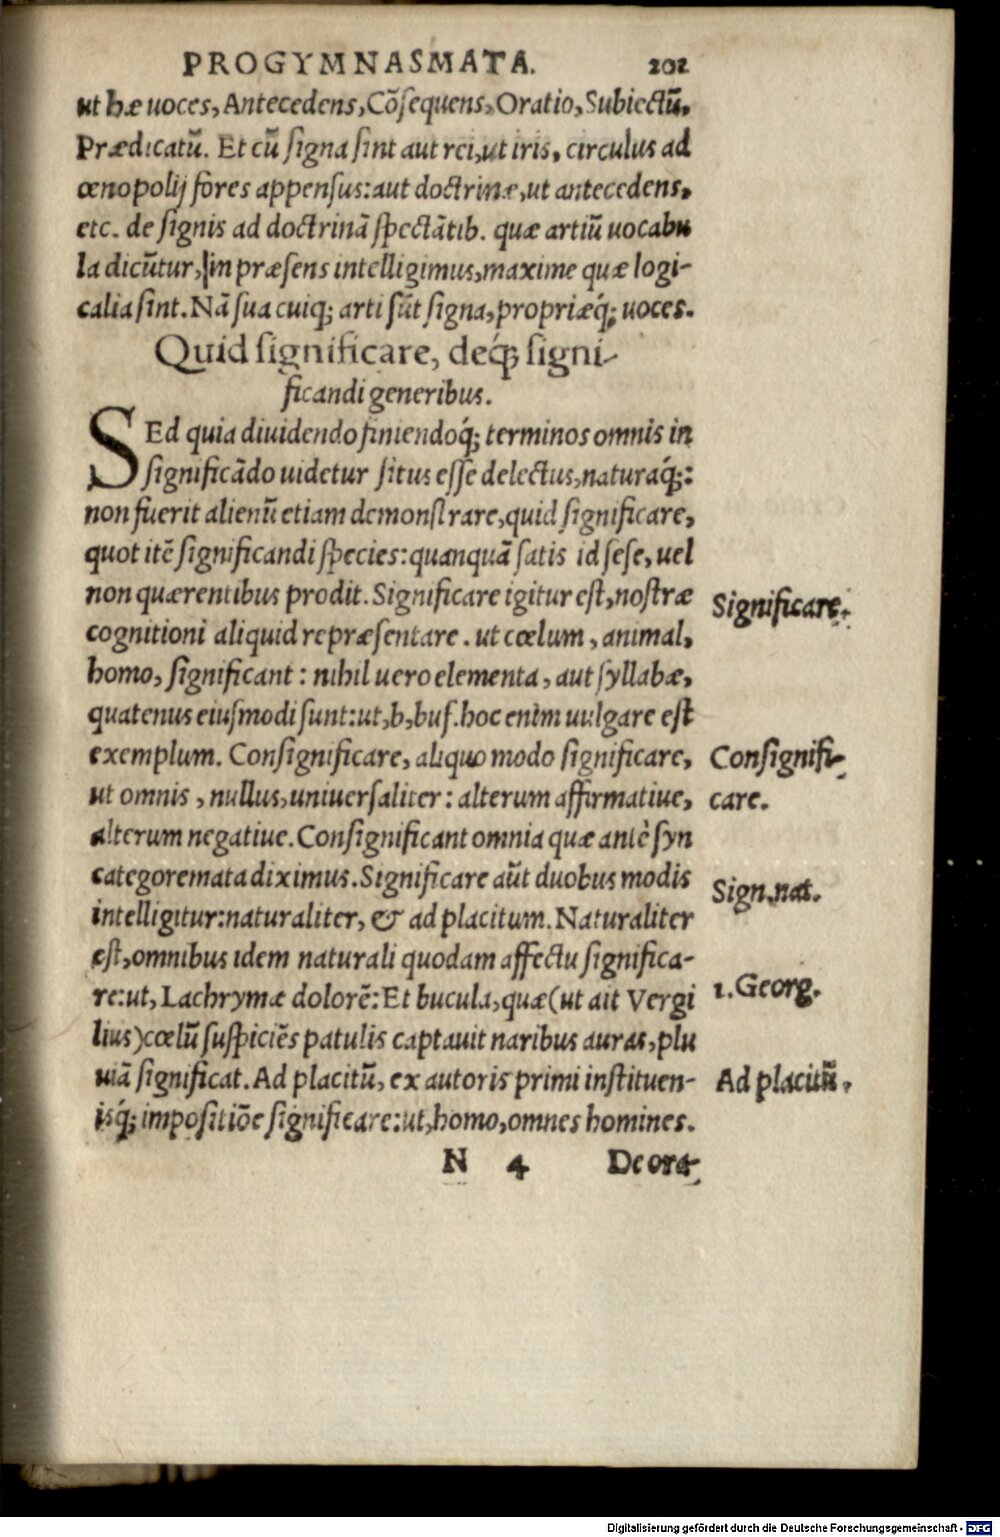 PROGYMNASMATA. 202
ut hæ uoces, Antecedens, Cōsequens, Oratio, Subiectū,
Prædicatū. Et cū signa sint aut rei, ut iris, circulus ad
œnopolij fores appensus: aut doctrinæ, ut antecedens,
etc. de signis ad doctrinā spectātib. quæ artiū uocabu
la dicūtur, in præsens intelligimus, maxime quæ logi-
calia sint. Nā sua cuiq; arti sūt signa, propriæq́; uoces.
Quid significare, deq́; signi-
ficandi generibus.
SEd quia diuidendo finiendoq́; terminos omnis in
significādo uidetur situs esse delectus, naturaq́;:
non fuerit alienū etiam demonstrare, quid significare,
quot itē significandi species: quanquā satis id sese, uel
non quærentibus prodit. Significare igitur est, nostræ
Significare.
cognitioni aliquid repræsentare. ut cœlum, animal,
homo, significant: nihil uero elementa, aut syllabæ,
quatenus eiusmodi sunt: ut, b, buf. hoc enim uulgare est
exemplum. Consignificare, aliquo modo significare,
Consignifi-
ut omnis, nullus, uniuersaliter: alterum affirmatiue,
care.
alterum negatiue. Consignificant omnia quæ antè syn
categoremata diximus. Significare aūt duobus modis
Sign. nat.
intelligitur: naturaliter, & ad placitum. Naturaliter
est, omnibus idem naturali quodam affectu significa-
re: ut, Lachrymæ dolorē: Et bucula, quæ (ut ait Vergi
1. Georg.
lius) cœlū suspiciēs patulis captauit naribus auras, plu
uiā significat. Ad placitū, ex autoris primi instituen-
Ad placitū.
isq́; impositiōe significare: ut, homo, omnes homines.
N 4 De ora-
Digitalisierung gefördert durch die Deutsche Forschungsgemeinschaft - DFG